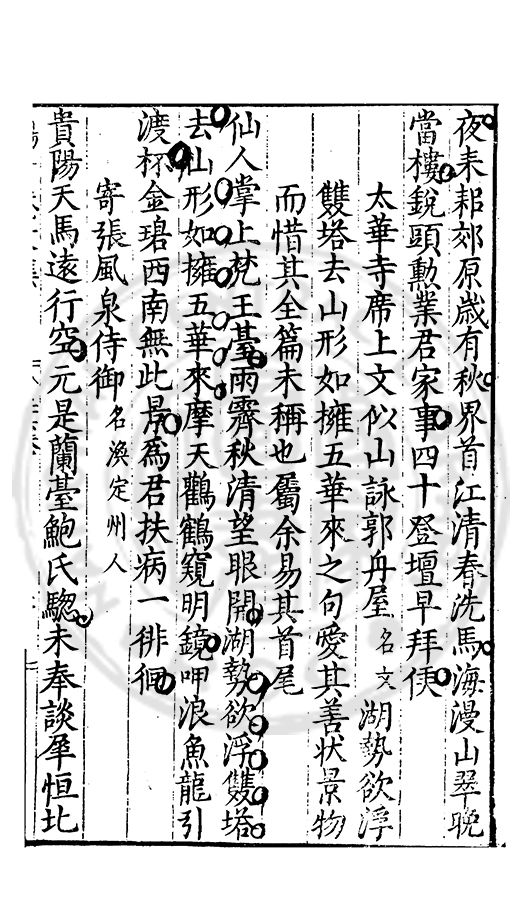 夜耒耜郊原歳有秋界首江清春洗馬海漫山翠晩
當樓銳頭勲業君家事四十登壇早拜侯
太華寺席上文似山詠郭舟屋名文湖勢欲浮
雙塔去山形如擁五華來之句愛其善狀景物
而惜其全篇未稱也屬余易其首尾
仙人掌上梵王臺雨霽秋清望眼開湖勢欲浮雙塔
去山形如擁五華來摩天鸛鶴窺明鏡呷浪魚龍引
渡杯金碧西南無此景爲君扶病一徘徊
寄張風泉侍御名渙定州人
貴陽天馬遠行空元是蘭臺鮑氏驄未奉談犀恒北